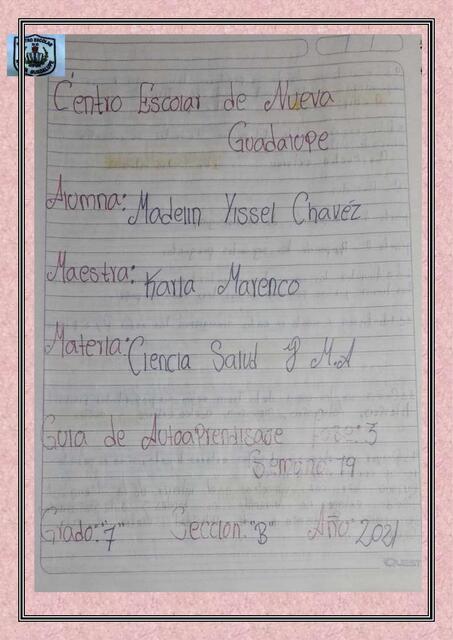 Centro Escolar de Nueva
Guadalupe
Alumna: Madelin Yissel Chavéz
Maestra: Karla Marenco
Materia: Ciencia Salud y M.A
Guia de Autoaprendisaje Fase: 3
Semana: 19
Grado: "7" Seccion: "B" Año: 2021
QUEST